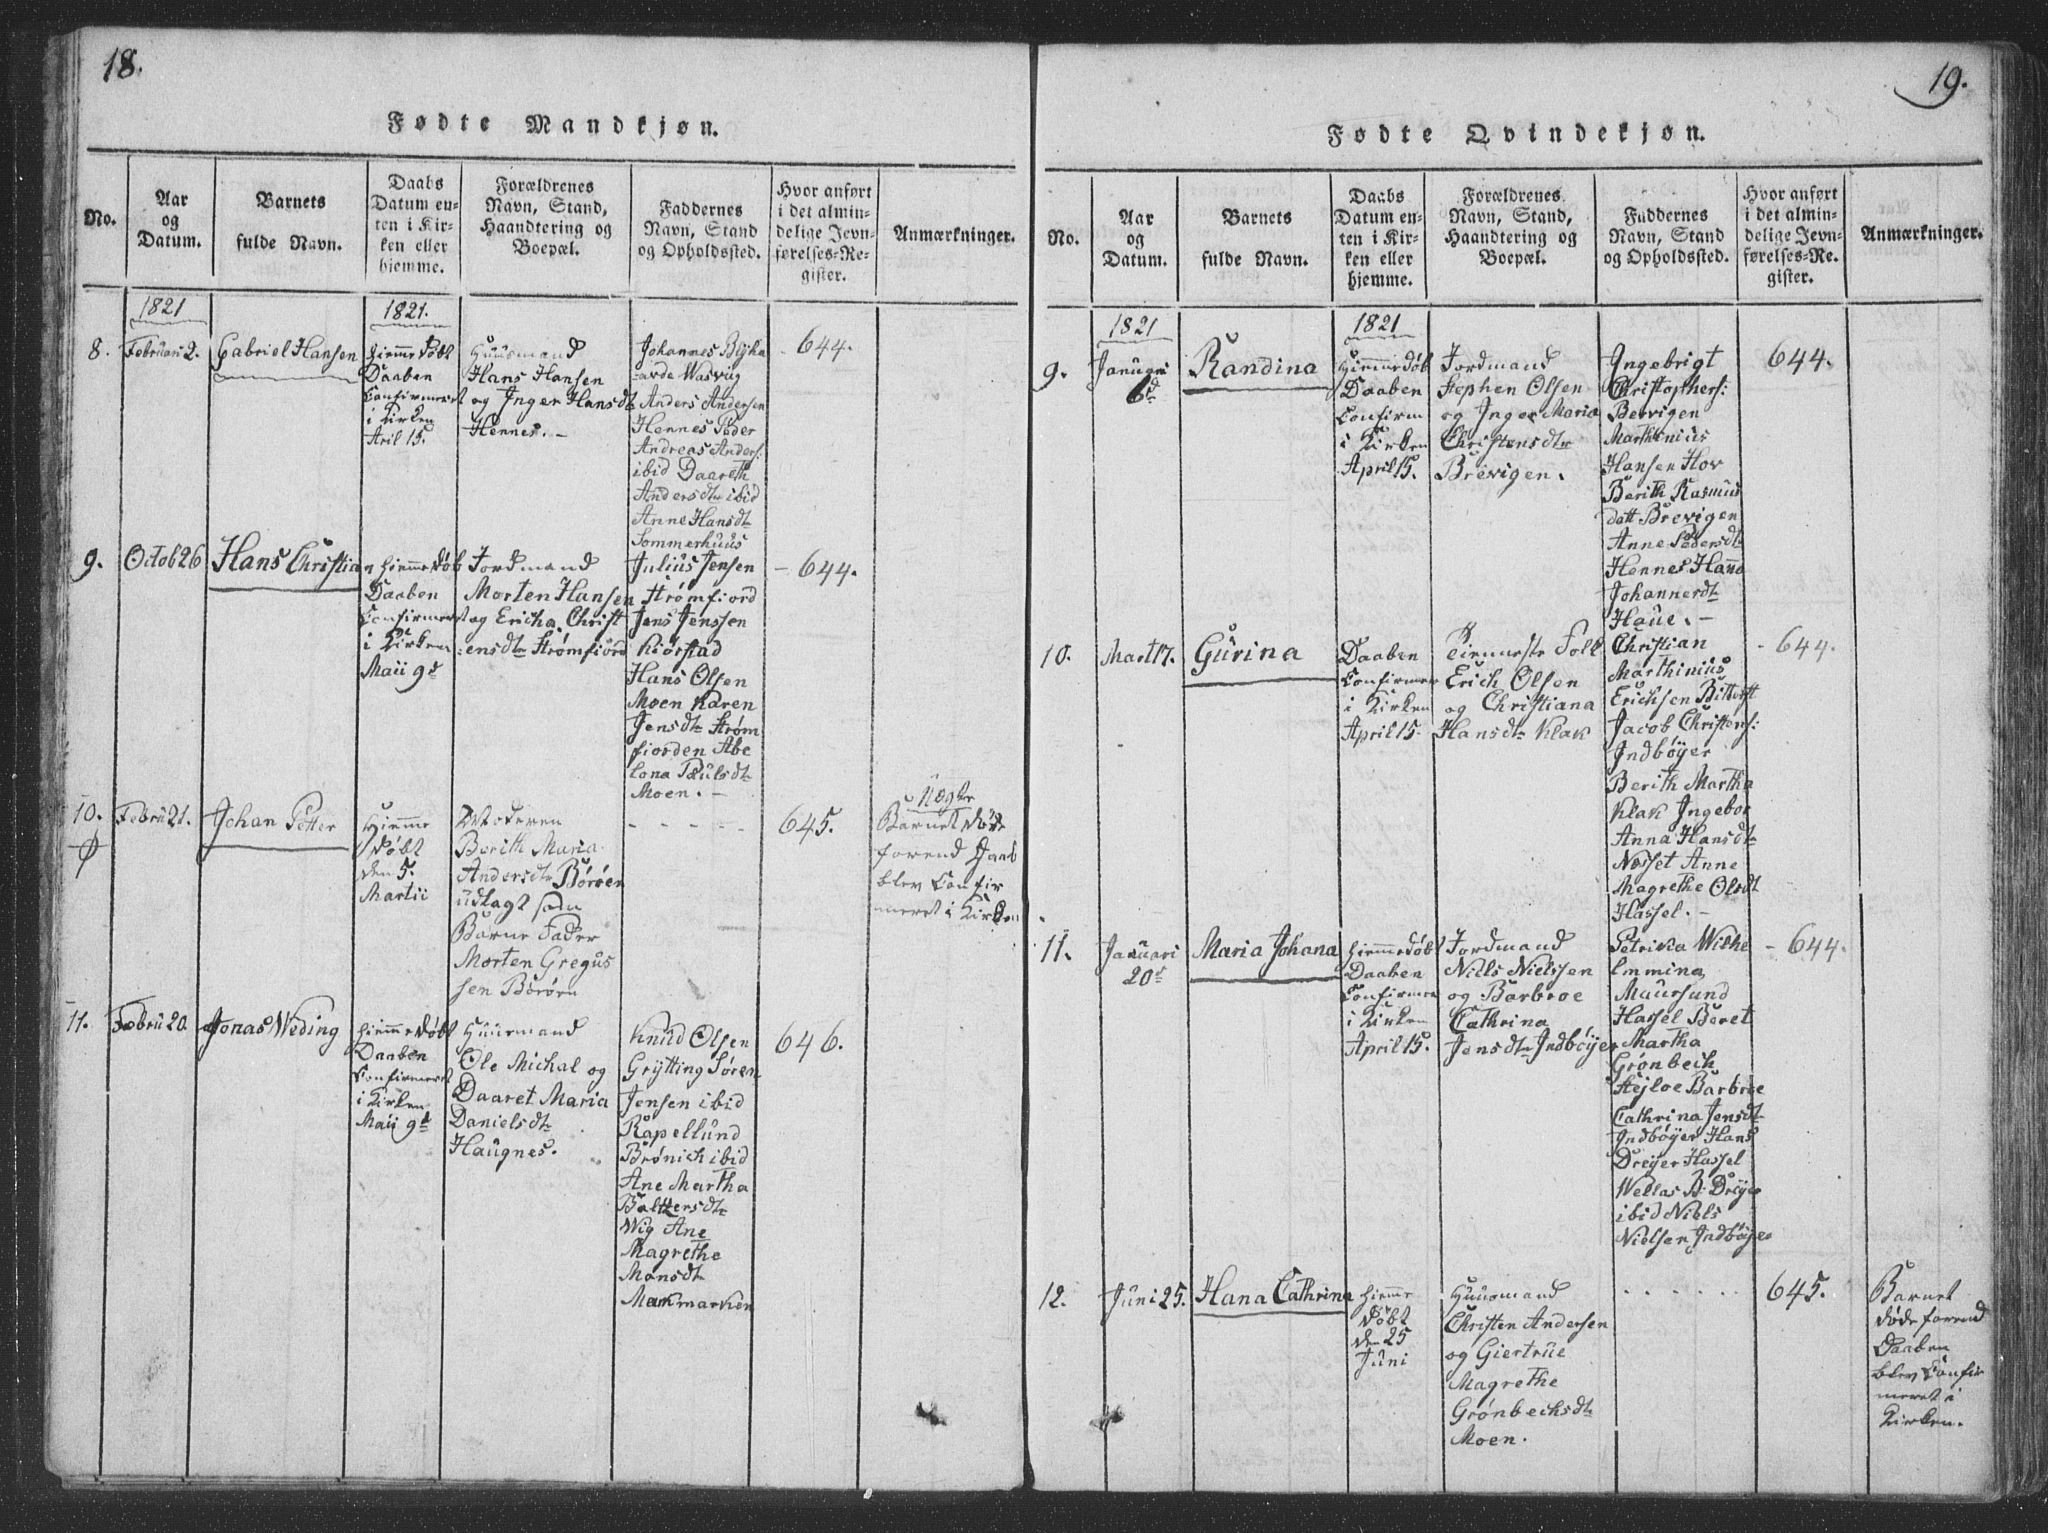 18.
Fødte Mandkjøn.
No.
Aar
og
Datum.
Barnets
fulde Navn.
Daabs
Datum en-
ten i Kir-
ken eller
hjemme.
Forældrenes
Navn, Stand,
Haandtering og
Boepæl.
Faddernes
Navn, Stand
og Opholdssted.
Hvor anført
i det almin-
delige Jevn-
førelses-Re-
gister.
Anmærkninger.
1821
1821.
8.
Februari 2.
Gabriel Hansen
hiemme Døbt
Daaben
Confirmeret
i Kirken
Aril 15.
Huusmand
Hans Hansen
og Inger Hansdt
Hennes. -
Johannes
Anders Andersen
Hennes Peder
Andreas Anders:
ibid Daareth
Andersdtr ibid
Anne Hansdtr
Sommerhuus
- 644.
9.
Octob 26
Hans Christian
hiemme Døb
Daaben
Confirmeret
i Kirken
Maii 9d
Jordmand
Morten Hansen
og Ericha Christ
:ensdtr Strømfiord
Julius Jensen
Strømfiord
Jens Jenssen
Kiørstad
Hans Olsen
Moen Karen
Jensdtr Strøm
fiorden Abe
lona Paulsdtr
Moen. -
- 644.
10.
Febru 21.
Johan Petter
Hiemme
Døbt
den 5.
Martii
Moderen
Berith Maria
Andersdtr Børøen
udlagt som
Barne Fader
Morten Gregus
sen Børøen
- - - - -
645.
Uægte
Barnet Døde
forend Daab
blev Confir
meret i Kirken
11.
Febru 20.
Jonas Weding
hiemme Døbt
Daaben
Confirmeret
i Kirken
Maii 9d
Huusmand
Ole Michal og
Daaret Maria
Danielsdtr
Haugnes.
Knud Olsen
Grytting Søren
Jensen ibid
Kapellund
Brønich ibid
Ane Martha
Baltzersdtr
Wig Ane
Magrethe
Monsdtr
Markmarken
646.
19.
Fødte Qvindekjøn.
No.
Aar
og
Datum.
Barnets
fulde Navn.
Daabs
Datum en-
ten i Kir-
ken eller
hjemme.
Forældrenes
Navn, Stand,
Haandtering og
Boepæl.
Faddernes
Navn, Stand
og Opholdssted.
Hvor anført
i det almin-
delige Jevn-
førelses-Re-
gister.
Anmærkninger.
1821
1821
9.
Januari
6d
Randina
Hiemmedøb
Daaben
Confirm
i Kirken
April 15.
Jordmand
Stephen Olsen
og Inger Maria
Christensdtr
Brevigen.
Ingebrigt
Christophers:
Bervigen
Marthinius
Hansen Hov
Berith Rasmus
datt Brevigen
Anne Pedersdtr
Hennes Hanna
Johannesdtr
Haue. -
644.
10.
Mart 17.
Gurina
Daaben
Confirmer
i Kirken
April 15.
Tienneste Folk
Erich Olsen
og Christiana
Hansdtr Klak
Christian
Marthinius
Erichsen
Jacob Christens:
Indbøyer
Berith Martha
Klak Ingebor
Anna Hansdtr
Nosset Anne
Magrethe Olsdt
Hassel. -
- 644.
11.
Januari
20d
Maria Johana
hiemmedøbt
Daaben
Confirmer
i Kirken
April 15.
Jordmand
Nills Nielssen
og Barbroe
Cathrina
Jensdtr Indbøyer
Petrika Wilhe
lmmina
Maursund
Hassel Beret
Martha
Grønbech
Steyloe Barbroe
Cathrina Jensdt
Indbøyer Hans
Dreyer Hassel
Wellas B. Dreyer
ibid Niels
Nielsen Indbøyer
- 644.
12.
Juni 25.
Hana Cathrina
Hiemme
Døbt
den 25
Juni
Huusmand
Christen Andersen
og Giertrue
Magrethe
Grønbechsdtr
Moen.
- - - - - -
645.
Barnet
døde forend
Daaben
blev Confir
meret i
Kirken.